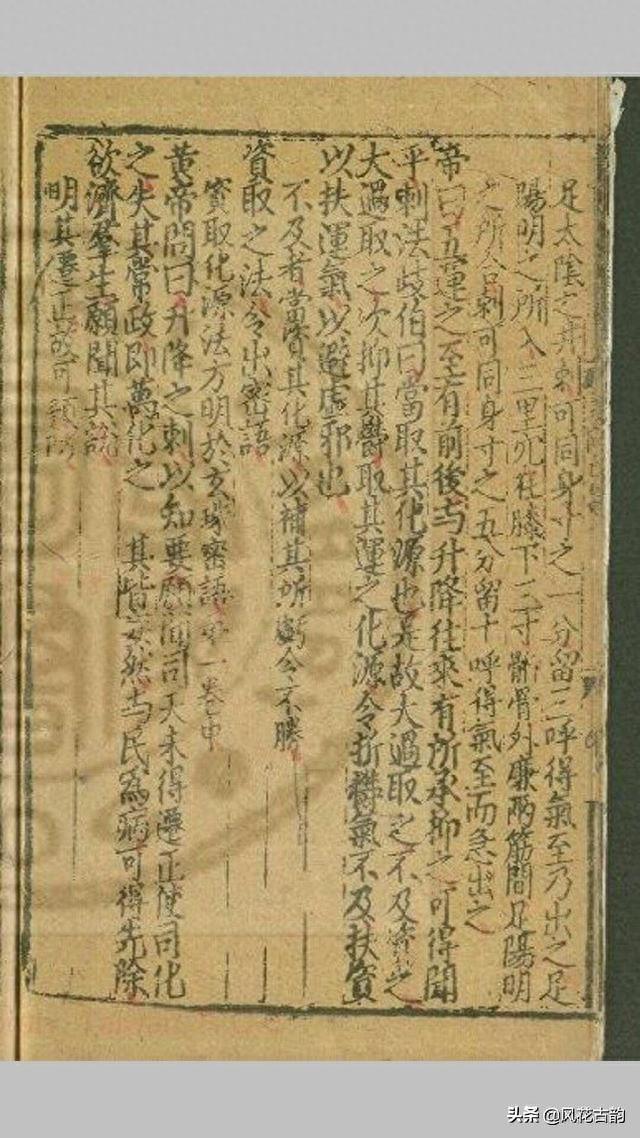 足太陰之井刺可同身寸之一分留三呼得氣至乃出之足
陽明之所入三里穴在膝下三寸骭骨外廉兩筋間足陽明
之所合刺可同身寸之五分留十呼得氣至而急出之
帝曰五運之至有前後与升降往來有所承抑之可得聞
乎刺法歧伯曰當取其化源也是故大過取之不及資之
大過取之次抑其鬱取其運之化源令折欝氣不及扶資
以扶運氣以避虚邪也
不及者當資其化源以補其所弱令不勝
資取之法令出密語
資取化源法方明於玄珠密語第一卷中
黄帝問曰升降之刺以知要願聞司天未得遷正使司化
之失其常政即萬化之 其皆妄然与民為病可得先除
欲濟羣生願聞其說
明其遷正
头条 @风花古韵